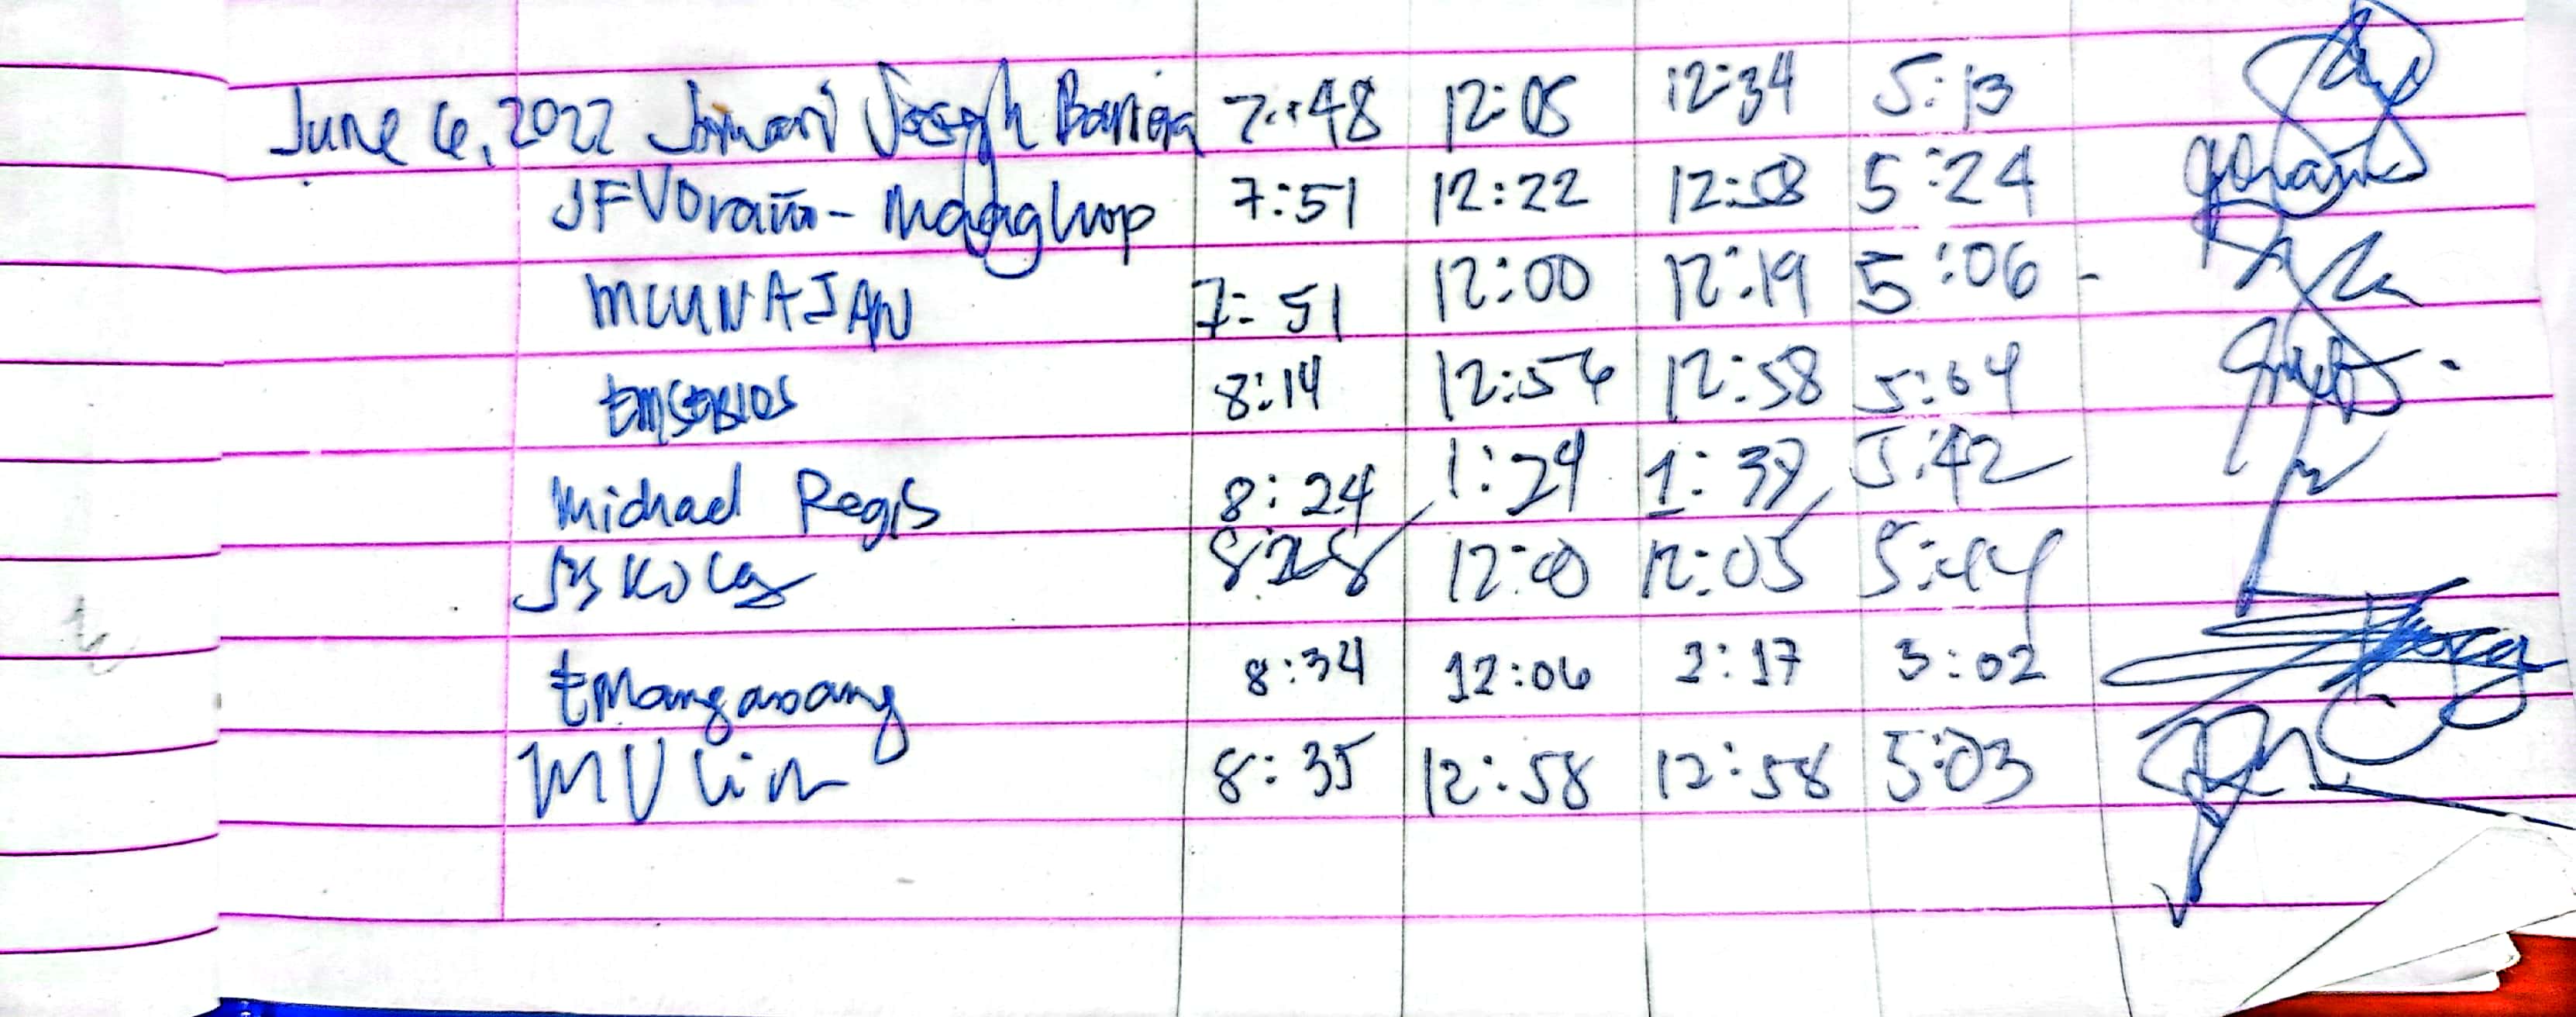 June 6, 2022 Jomari Joseph Barrera 7:48 12:05 12:34 5:13
JFVoraño - Maaghop 7:51 12:22 12:58 5:24
MCUNAJAN 7:51 12:00 12:19 5:06
8:14 12:56 12:58 5:04
Michael Regis 8:24 1:24 1:39 5:42
8:28 12:00 12:05 5:44
8:34 12:06 2:17 5:02
MV Lim 8:35 12:58 12:58 5:03